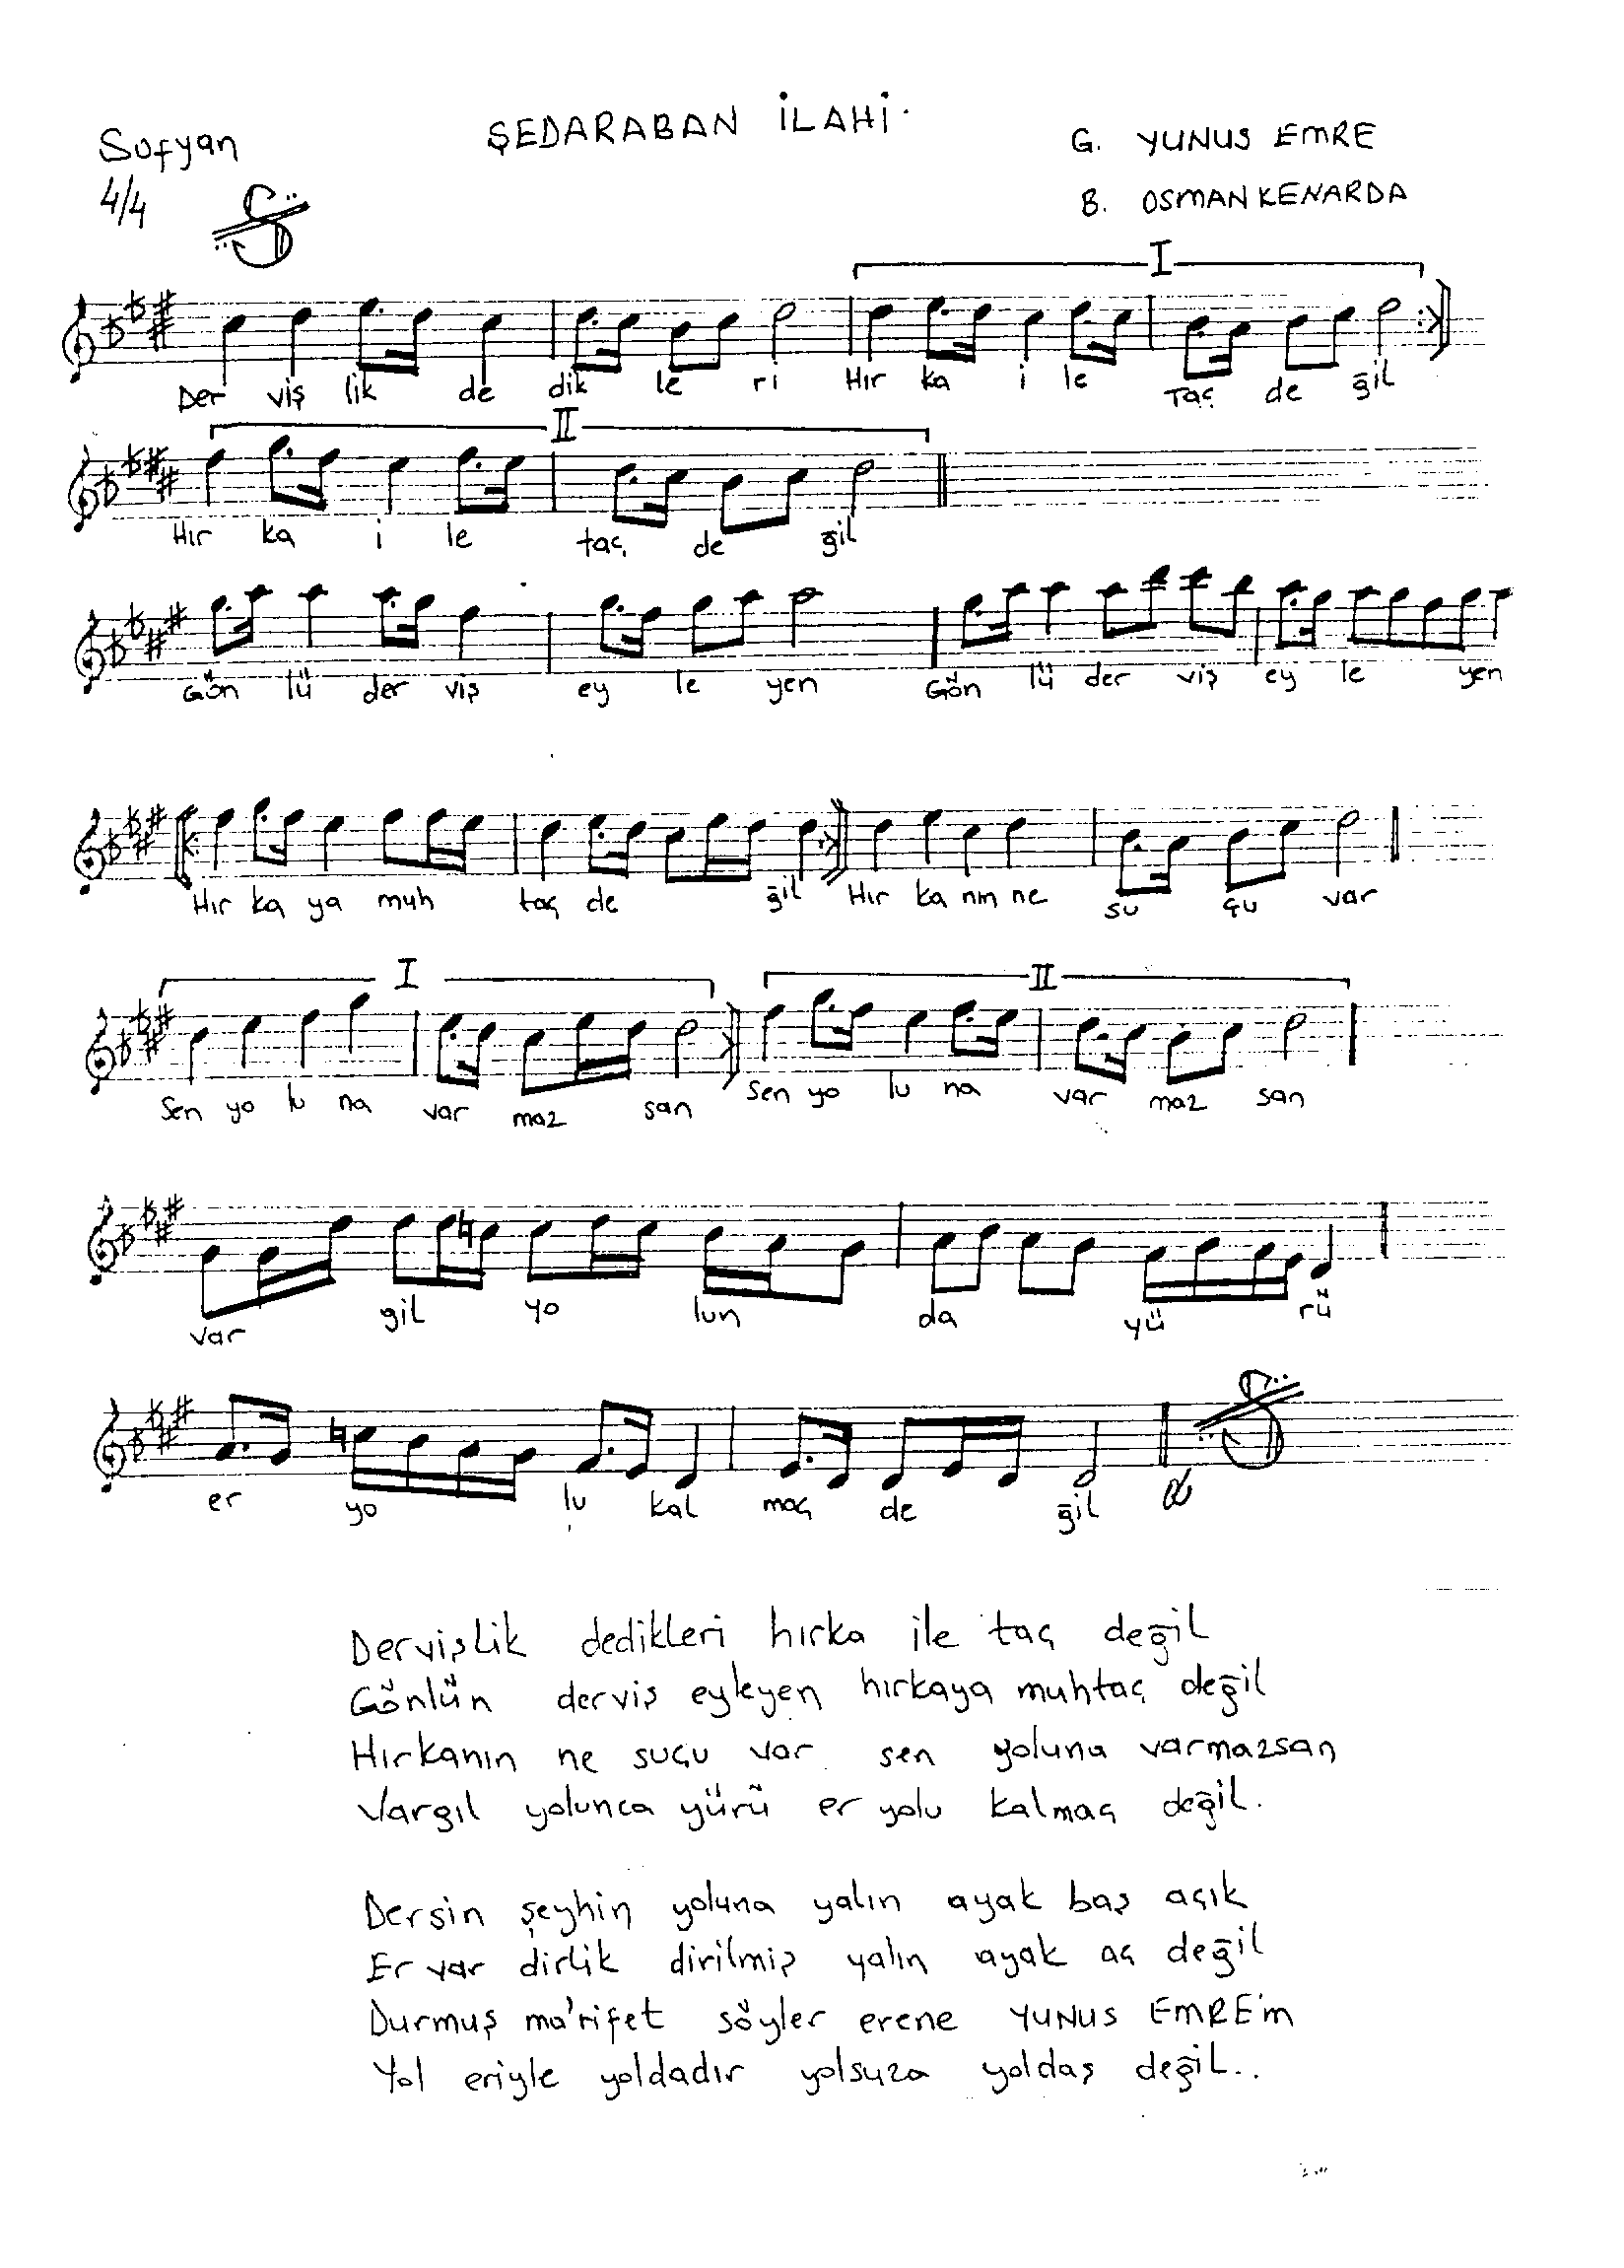 Sofyan
4/4
ŞEDARABAN İLAHİ.
G. YUNUS EMRE
B. OSMAN KENARDA
I
Der viş lik de dik le ri Hır ka i le Taç de ğil
II
Hır ka i le taç de ğil
Gön lü der viş ey le yen Gön lü der viş ey le yen
Hır ka ya muh taç de ğil Hır ka nın ne su çu var
I II
Sen yo lu na var maz san Sen yo lu na var maz san
var gil yo lun da yü rü
er yo lu kal maç de ğil
Dervişlik dedikleri hırka ile taç değil
Gönlün derviş eyleyen hırkaya muhtaç değil
Hırkanın ne suçu var sen yoluna varmazsan
Vargıl yolunca yürü er yolu kalmaç değil.
Dersin şeyhin yoluna yalın ayak baş açık
Er var dirlik dirilmiş yalın ayak aç değil
Durmuş ma'rifet söyler erene YUNUS EMRE'm
Yol eriyle yoldadır yolsuza yoldaş değil..